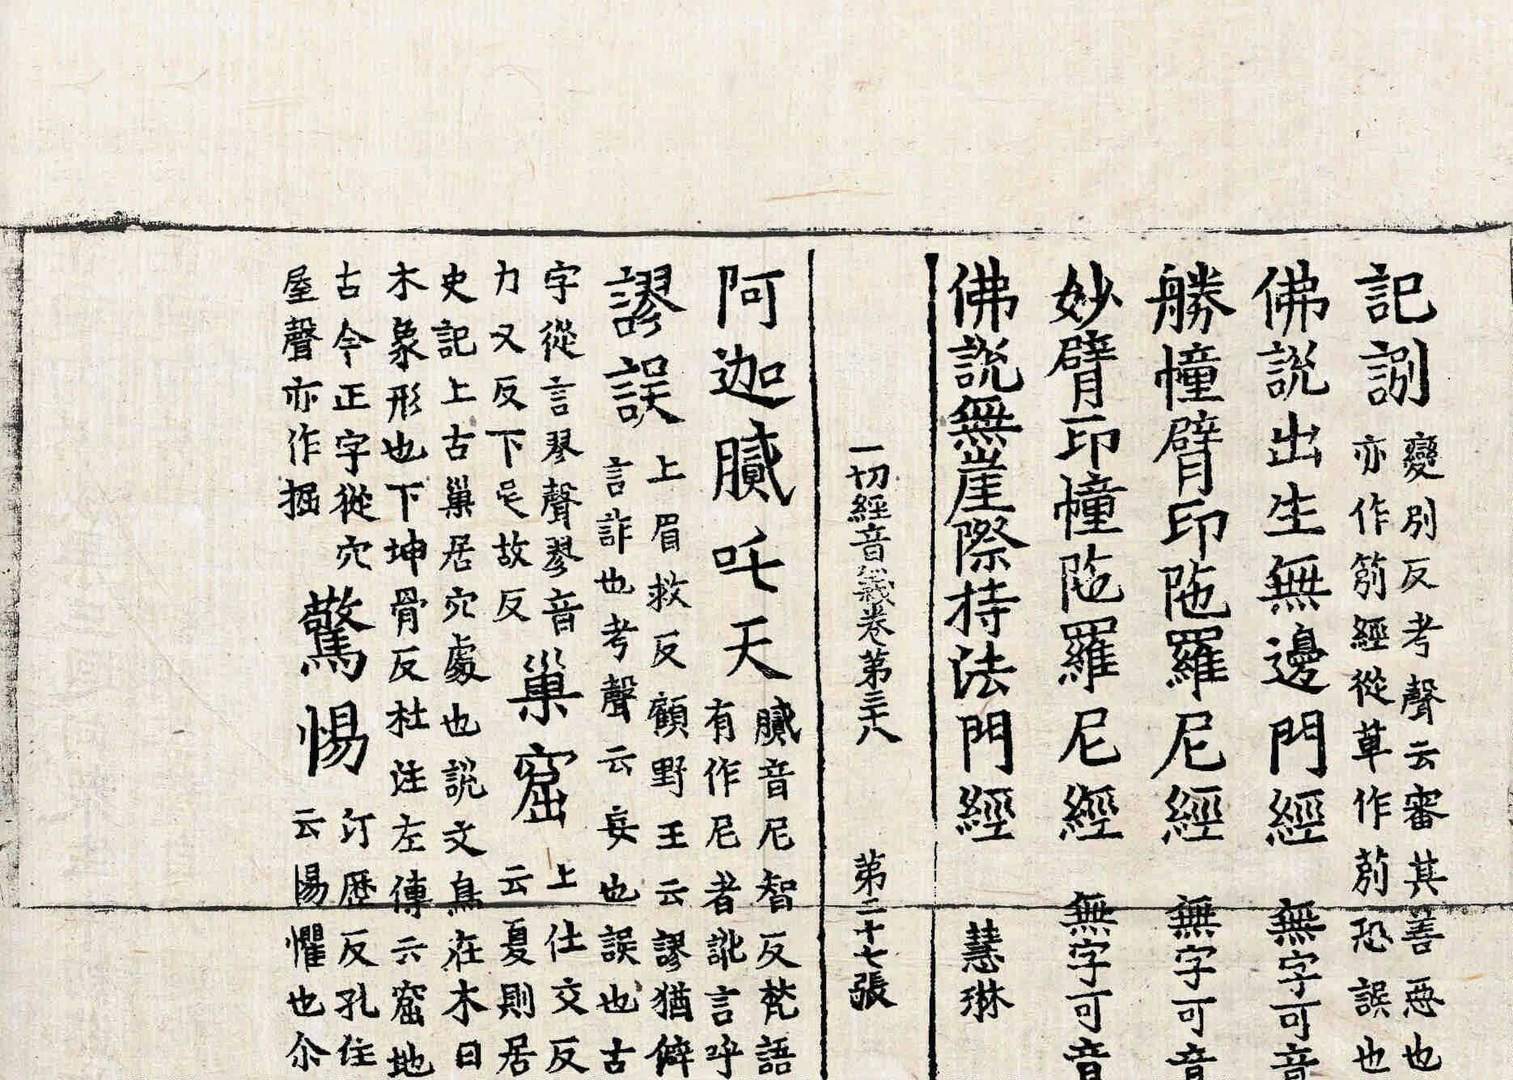 記莂 變別反考聲云審其善惡也
亦作箣經從草作莂恐誤也
佛說出生無邊門經 無字可音
勝幢臂印陁羅尼經 無字可音
妙臂印幢陁羅尼經 無字可音
佛說無崖際持法門經 慧琳
一切經音義卷第三十八 第二十七張
阿迦膩吒天 膩音尼智反梵語
有作尼者訛言呼
謬誤 上眉救反顧野王云謬猶僻
言詐也考聲云妄也誤也古
字從言翏聲翏音
力又反下吳故反
巢窟 上仕交反
云夏則居
史記上古巢居穴處也說文鳥在木曰
木象形也下坤骨反杜注左傳云窟地
古今正字從穴
屋聲亦作掘
驚惕 汀歷反孔住
云惕懼也尒